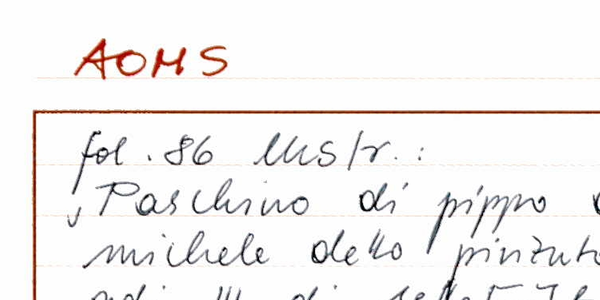 AOMS
fol. 86 MS/r. :
"Paschino di pippo
michele detto pinzuto
adi